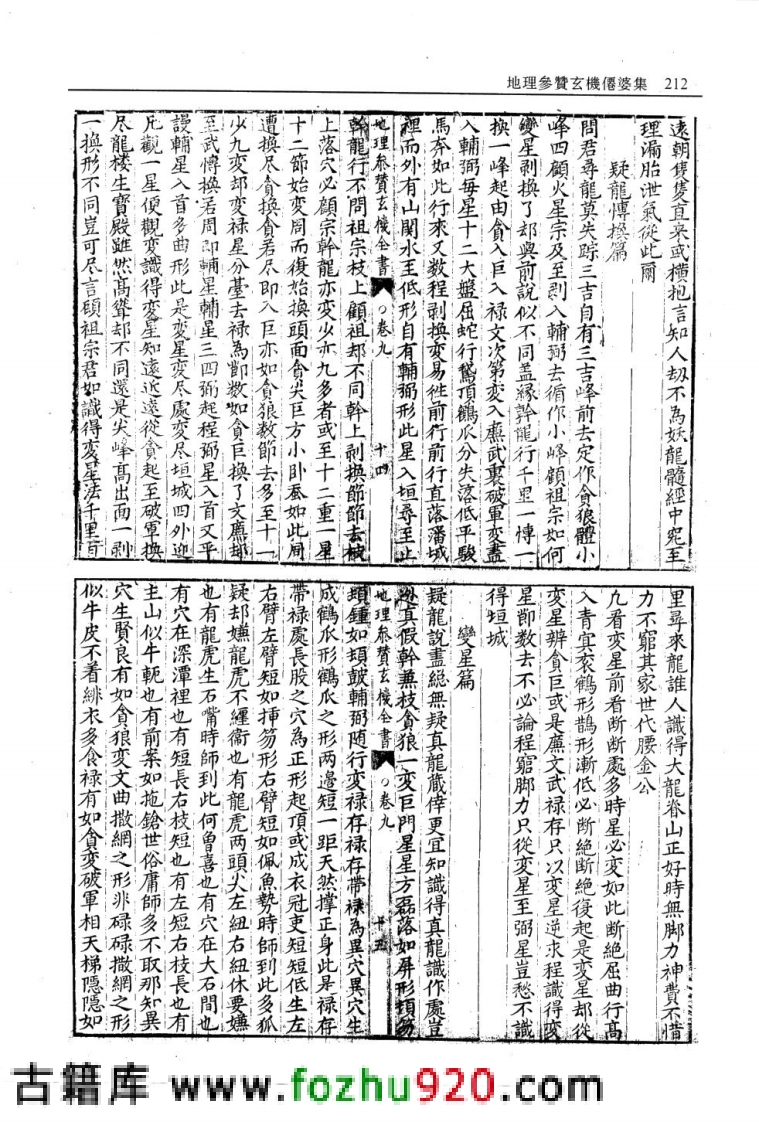 地理參贊玄機僊婆集 212
遠朝雙隻直來或橫抱言知人刼不為妖龍髓經中宛至
理漏胎泄氣從此爾
疑龍傳換篇
問君尋龍莫失踪三吉自有三吉峰前去定作貪狼體小
峰四顧火星宗及至剥入輔弼去循作小峰顧祖宗如何
變星剥換了却與前說似不同盖縁幹龍行千里一博一
換一峰起由貪入巨入禄文次第变入廉武裏破軍变盡
入輔弼每星十二大盤屈蛇行鵞頂鶴爪分失落低平駿
馬奔如此行來又数程剥換变易徃前行前行直落藩城
裡而外有山関水至低形自有輔弼形此星入垣尋至止
地理參贊玄機全書 卷九 十四
幹龍行不問祖宗枝上顧祖却不同幹上剥換節節去枝
上落穴必顧宗幹龍亦变少亦九多者或至十二重一星
十二節始变周而復始換頭面貪尖巨方小卧蚕如此周
遭換尽貪換貪若尽即入巨亦如貪狼数節去多至十一
少九变却变禄星分墓去禄為節数如貪巨換了文廉却
至武傳換若周即輔星輔星三四弼起程弼星入首又平
謾輔星入首多曲形此是变星变尽處变尽垣城四外迎
凢觀一星便觀变識得变星知遠近遠從貪起至破軍換
尽龍楼生寶殿雖然髙聳却不同還是尖峰髙出面一剥
一換形不同豈可尽言碩祖宗君如識得变星法千里百
里尋來龍誰人識得大龍脊山正好時無脚力神費不惜
力不窮其家世代腰金公
九看変星前看断断處多時星必変如此断絶屈曲行髙
入青冥衮鶴形鵲形漸低必断絶断絶復起是変星却從
变星辨貪巨或是廉文武禄存只以变星逆求程識得变
星即数去不必論程窮脚力只從变星至弼星豈愁不識
得垣城
變星篇
疑龍說盡総無疑真龍藏倖更宜知識得真龍識作處豈
真假幹兼枝貪狼一変巨門星星方磊落如屏形頊笏
地理參贊玄機全書 卷九 十五
頊鍾如頊皷輔弼随行变禄存禄存帶禄為異穴異穴生
成鶴爪形鶴爪之形两邉短一距天然撑正身此是禄存
帶禄處長股之穴為正形起頂或成衣冠吏短短低生左
右臂左臂短如挿笏形右臂短如佩魚勢時師到此多狐
疑却嫌龍虎不纒衛也有龍虎两頭火左紐右紐休要嫌
也有龍虎生石嘴時師到此何曽喜也有穴在大石間也
有穴在深潭裡也有短長右枝短也有左短右枝長也有
主山似牛軛也有前案如拖鎗世俗庸師多不取那知異
穴生賢良有如貪狼变文曲撒網之形非碌碌撒網之形
似牛皮不着緋衣多食禄有如貪变破軍相天梯隠隠如
古籍库 www.fozhu920.com